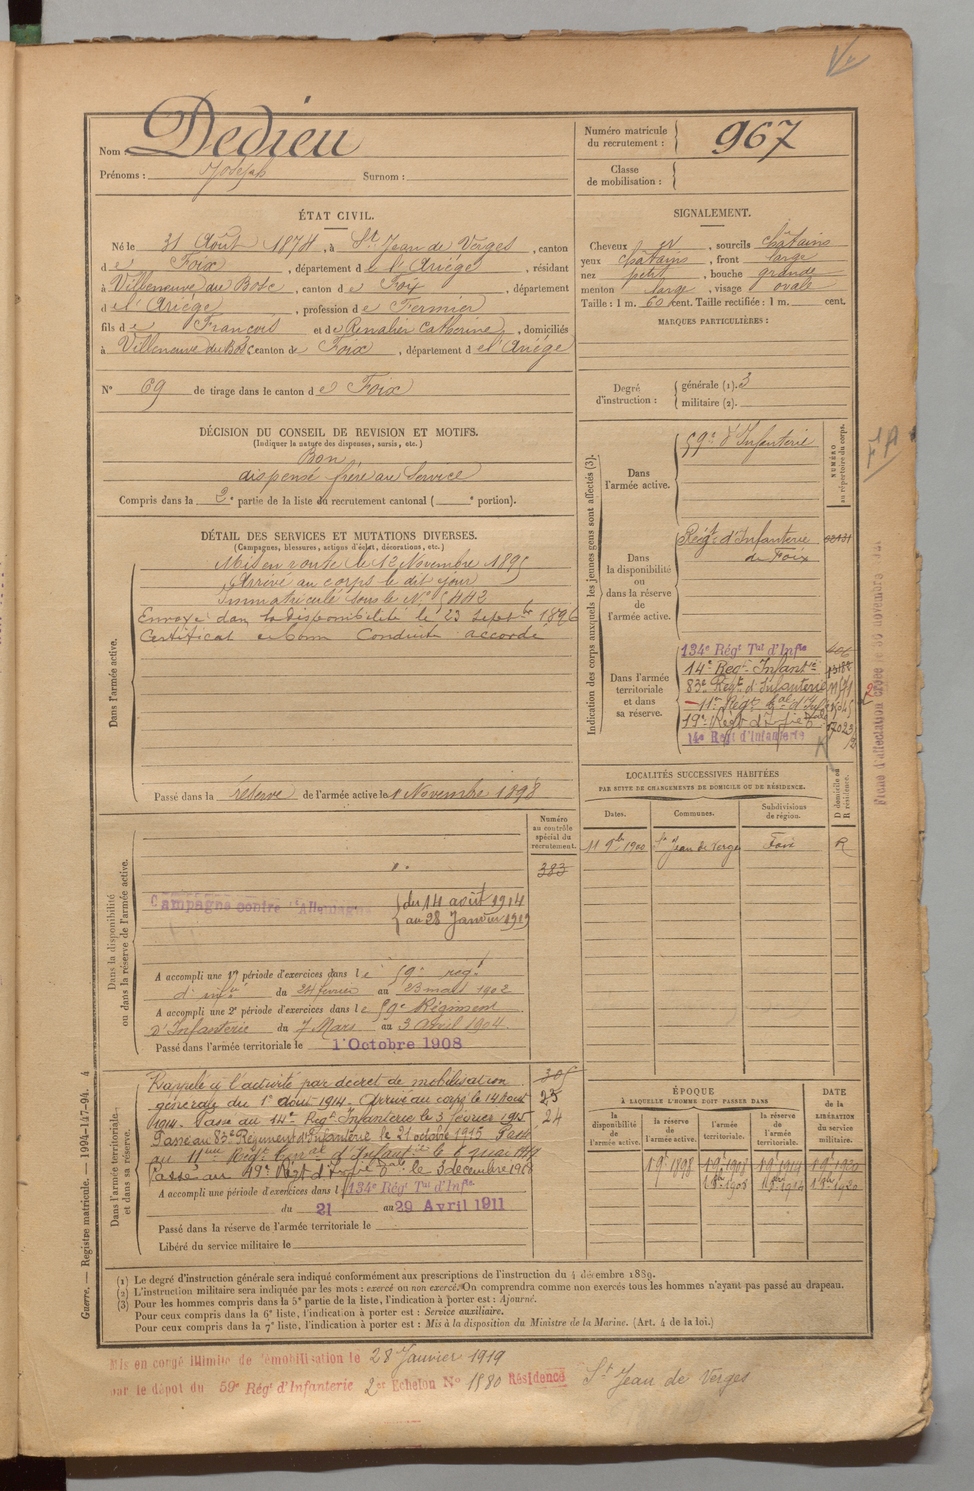 Nom : Dedieu
Prénoms : Joseph Surnom :
Numéro matricule du recrutement : 967
Classe de mobilisation :
ÉTAT CIVIL.
Né le 31 Août 1874, à St Jean de Verges, canton
de Foix, département de l'Ariége, résidant
à Villeneuve du Bosc, canton de Foix, département
de l'Ariége, profession de Fermier
fils de François et de Catherine, domiciliés
à Villeneuve du Bosc canton de Foix, département de l'Ariége
N° 69 de tirage dans le canton de Foix
SIGNALEMENT.
Cheveux , sourcils châtains
yeux chatains, front large
nez petit, bouche grande
menton large, visage ovale
Taille : 1 m. 60 cent. Taille rectifiée : 1 m. cent.
MARQUES PARTICULIÈRES :
Degré d'instruction : générale (1). 3
militaire (2).
DÉCISION DU CONSEIL DE REVISION ET MOTIFS.
(Indiquer la nature des dispenses, sursis, etc.)
Bon
dispensé frère au Service
Compris dans la 2e partie de la liste du recrutement cantonal ( e portion).
DÉTAIL DES SERVICES ET MUTATIONS DIVERSES.
(Campagnes, blessures, actions d'éclat, décorations, etc.)
Dans l'armée active.
Mis en route le 12 Novembre 1895
Arrivé au corps le dit jour
Immatriculé sous le N°
Envoyé dans la disponibilité le 23 Septbre 1896
Certificat de bonne Conduite accordé
Passé dans la réserve de l'armée active le 1 Novembre 1898
Indication des corps auxquels les jeunes gens sont affectés (3).
NUMÉRO au répertoire du corps.
Dans l'armée active.
59e d'Infanterie
Dans la disponibilité ou dans la réserve de l'armée active.
Régt d'Infanterie
de Foix
Dans l'armée territoriale et dans sa réserve.
134e Régt Tal d'Infie
14e Regt Infantie
83e Regt d'Infanterie
14e Regt d'Infanterie
Fiche d'affectation
LOCALITÉS SUCCESSIVES HABITÉES
PAR SUITE DE CHANGEMENTS DE DOMICILE OU DE RÉSIDENCE.
Dates. Communes. Subdivisions de région. D domicile ou R résidence.
11 9bre 1900 St Jean de Verges Foix R
Dans la disponibilité ou dans la réserve de l'armée active.
Numéro au contrôle spécial du recrutement.
383
Campagne contre l'Allemagne du 14 août 1914
au 28 Janvier 1919
A accompli une 1re période d'exercices dans le 59e regt
d'infie du 24 février au 23 mars 1902
A accompli une 2e période d'exercices dans le 59e Régiment
d'Infanterie du 7 Mars au 3 avril 1904.
Passé dans l'armée territoriale le 1 Octobre 1908
Dans l'armée territoriale et dans sa réserve.
Rappelé à l'activité par decret de mobilisation
générale du 1er août 1914. Arrivé au corps le 14 aout
1914. Passé au 14e Regt Infanterie le 3 février 1915
Passé au 83e Regiment d'Infanterie le 21 octobre 1915 Passé
au 11eme Régt
Passé au 19e Regt le 3 decembre
A accompli une période d'exercices dans l 134e Régt Tal d'Infie
du 21 au 29 Avril 1911
Passé dans la réserve de l'armée territoriale le
Libéré du service militaire le
25
24
ÉPOQUE
À LAQUELLE L'HOMME DOIT PASSER DANS
DATE de la LIBÉRATION du service militaire.
la disponibilité de l'armée active.
la réserve de l'armée active.
l'armée territoriale.
la réserve de l'armée territoriale.
(1) Le degré d'instruction générale sera indiqué conformément aux prescriptions de l'instruction du 4 décembre 1889.
(2) L'instruction militaire sera indiquée par les mots : exercé ou non exercé. On comprendra comme non exercés tous les hommes n'ayant pas passé au drapeau.
(3) Pour les hommes compris dans la 5e partie de la liste, l'indication à porter est : Ajourné.
Pour ceux compris dans la 6e liste, l'indication à porter est : Service auxiliaire.
Pour ceux compris dans la 7e liste, l'indication à porter est : Mis à la disposition du Ministre de la Marine. (Art. 4 de la loi.)
Guerre. — Registre matricule. — 1994-147-94. 4
Mis en congé illimité de démobilisation le 28 Janvier 1919
par le dépôt du 59e Régt d'Infanterie 2e Echelon N° 1880 Résidence St Jean de Verges